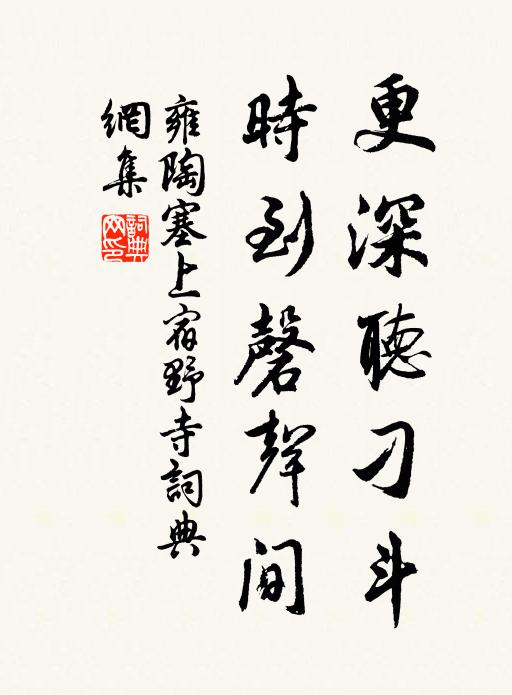 更深聽刁斗
時到磬聲間
雍陶塞上宿野寺詞典
網集
詞典網印